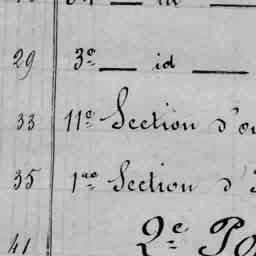 29 3e — id —
33 11e Section d'ou
35 1re Section d'
41 2e Po